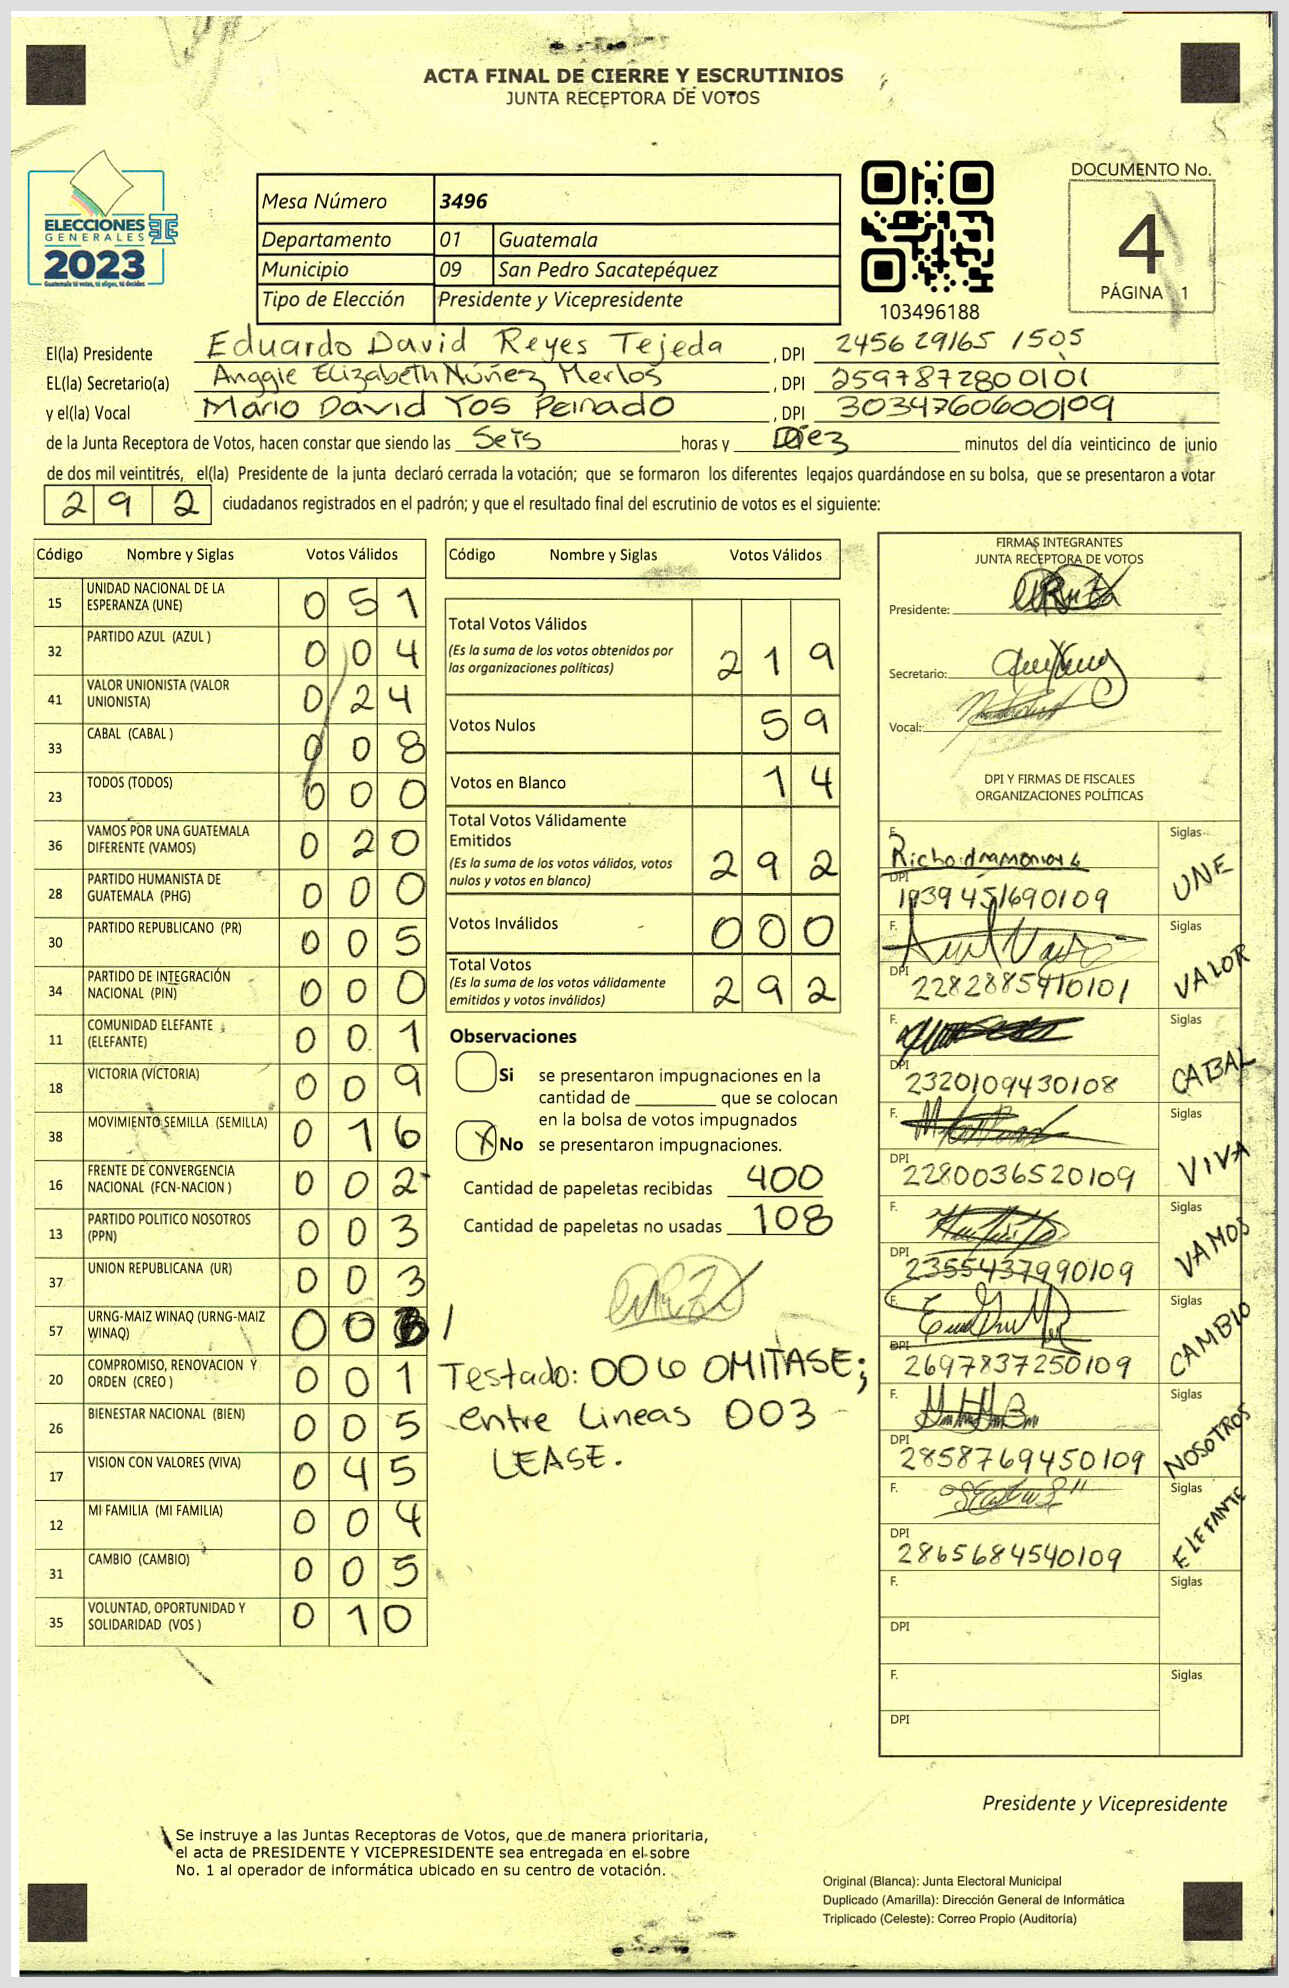 ACTA FINAL DE CIERRE Y ESCRUTINIOS
JUNTA RECEPTORA DE VOTOS
ELECCIONES
GENERALES
2023
Guatemala tú votas, tú eliges, tú decides
Mesa Número 3496
Departamento 01 Guatemala
Municipio 09 San Pedro Sacatepéquez
Tipo de Elección Presidente y Vicepresidente
103496188
DOCUMENTO No.
4
PÁGINA 1
El(la) Presidente Eduardo David Reyes Tejeda, DPI 245629165 1505
EL(la) Secretario(a) Anggie Elizabeth Núñez Merlos, DPI 2597872800101
y el(la) Vocal Mario David Yos Peinado, DPI 3034760600109
de la Junta Receptora de Votos, hacen constar que siendo las Seis horas y Diez minutos del día veinticinco de junio
de dos mil veintitrés, el(la) Presidente de la junta declaró cerrada la votación; que se formaron los diferentes legajos guardándose en su bolsa, que se presentaron a votar
292 ciudadanos registrados en el padrón; y que el resultado final del escrutinio de votos es el siguiente:
Código Nombre y Siglas Votos Válidos
15 UNIDAD NACIONAL DE LA ESPERANZA (UNE) 051
32 PARTIDO AZUL (AZUL ) 004
41 VALOR UNIONISTA (VALOR UNIONISTA) 024
33 CABAL (CABAL ) 008
23 TODOS (TODOS) 000
36 VAMOS POR UNA GUATEMALA DIFERENTE (VAMOS) 020
28 PARTIDO HUMANISTA DE GUATEMALA (PHG) 000
30 PARTIDO REPUBLICANO (PR) 005
34 PARTIDO DE INTEGRACIÓN NACIONAL (PIN) 000
11 COMUNIDAD ELEFANTE (ELEFANTE) 001
18 VICTORIA (VICTORIA) 009
38 MOVIMIENTO SEMILLA (SEMILLA) 016
16 FRENTE DE CONVERGENCIA NACIONAL (FCN-NACION ) 002
13 PARTIDO POLITICO NOSOTROS (PPN) 003
37 UNION REPUBLICANA (UR) 003
57 URNG-MAIZ WINAQ (URNG-MAIZ WINAQ) 003
20 COMPROMISO, RENOVACION Y ORDEN (CREO ) 001
26 BIENESTAR NACIONAL (BIEN) 005
17 VISION CON VALORES (VIVA) 045
12 MI FAMILIA (MI FAMILIA) 004
31 CAMBIO (CAMBIO) 005
35 VOLUNTAD, OPORTUNIDAD Y SOLIDARIDAD (VOS ) 010
Código Nombre y Siglas Votos Válidos
Total Votos Válidos
(Es la suma de los votos obtenidos por
las organizaciones políticas) 219
Votos Nulos 59
Votos en Blanco 14
Total Votos Válidamente
Emitidos
(Es la suma de los votos válidos, votos
nulos y votos en blanco) 292
Votos Inválidos 000
Total Votos
(Es la suma de los votos válidamente
emitidos y votos inválidos) 292
Observaciones
Si se presentaron impugnaciones en la
cantidad de ________ que se colocan
en la bolsa de votos impugnados
X No se presentaron impugnaciones.
Cantidad de papeletas recibidas 400
Cantidad de papeletas no usadas 108
Testado: 006 OMITASE;
entre Lineas 003
LEASE.
FIRMAS INTEGRANTES
JUNTA RECEPTORA DE VOTOS
Presidente:
Secretario:
Vocal:
DPI Y FIRMAS DE FISCALES
ORGANIZACIONES POLÍTICAS
F. Siglas
DPI 1939451690109 UNE
F. Siglas
DPI 2282885410101 VALOR
F. Siglas
DPI 2320109430108 CABAL
F. Siglas
DPI 2280036520109 VIVA
F. Siglas
DPI 2355437990109 VAMOS
F. Siglas
DPI 2697837250109 CAMBIO
F. Siglas
DPI 2858769450109 NOSOTROS
F. Siglas
DPI 2865684540109 ELEFANTE
F. Siglas
DPI
F. Siglas
DPI
Presidente y Vicepresidente
Se instruye a las Juntas Receptoras de Votos, que de manera prioritaria,
el acta de PRESIDENTE Y VICEPRESIDENTE sea entregada en el sobre
No. 1 al operador de informática ubicado en su centro de votación.
Original (Blanca): Junta Electoral Municipal
Duplicado (Amarilla): Dirección General de Informática
Triplicado (Celeste): Correo Propio (Auditoría)